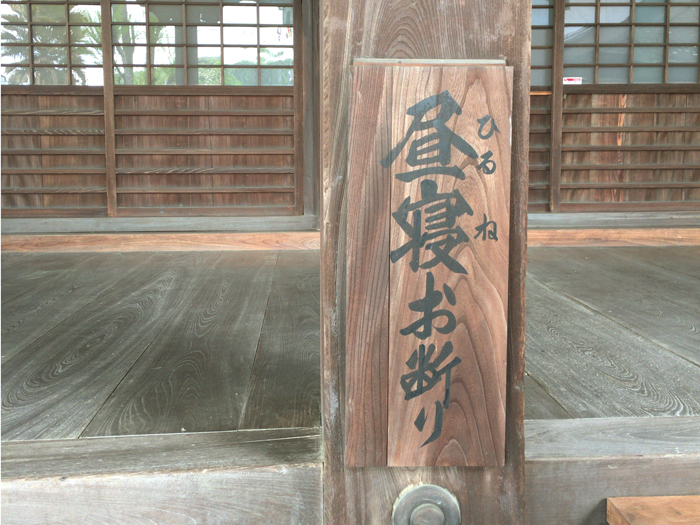 昼寝お断り
ひる
ね